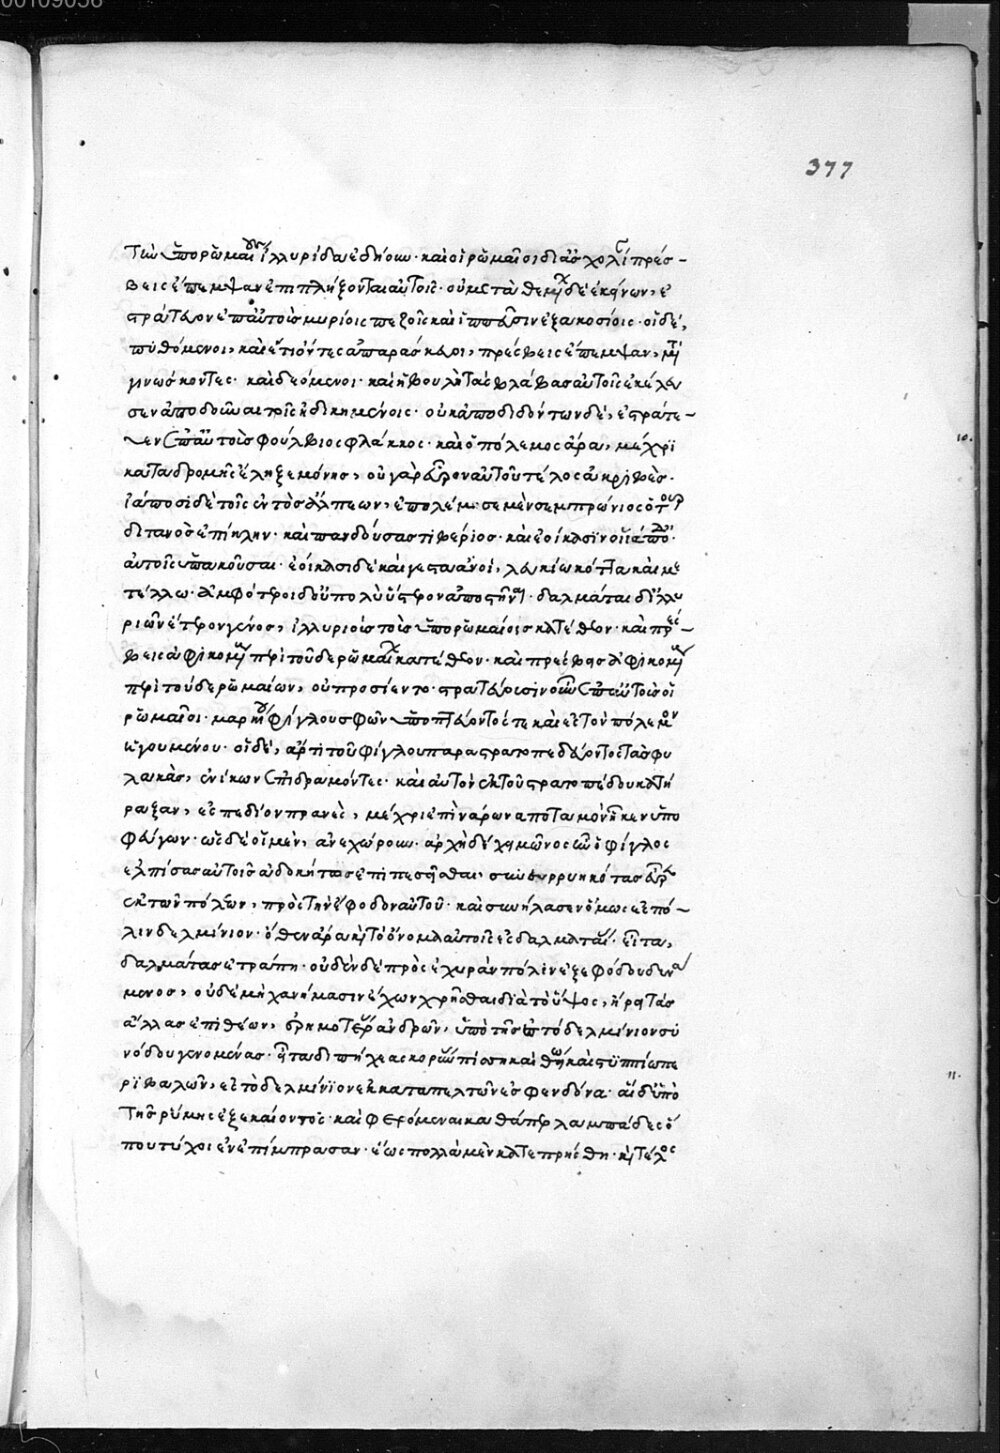 377
τὴν ὑπὸ ῥωμαίοις ἰλλυρίδα ἐδῄουν· καὶ οἱ ῥωμαῖοι δι' ἀσχολίαν πρέσ-
βεις ἔπεμψαν ἐπιπλήξοντας αὐτοῖς· οὐ μεταθεμένων δὲ ἐκείνων, ἐ
στράτευον ἐπ' αὐτοὺς μυρίοις πεζοῖς καὶ ἱππεῦσιν ἑξακοσίοις· οἱ δέ,
πυθόμενοι, καὶ ἔτι ὄντες ἀπαράσκευοι, πρέσβεις ἔπεμψαν, μετα
γινώσκοντες· καὶ δεόμενοι· καὶ ἡ βουλὴ τὰς βλάβας αὐτοῖς ἐκέλευ
σεν ἀποδοῦναι τοῖς ἠδικημένοις· οὐκ ἀποδιδόντων δέ, ἐστράτε-
υεν ἐπ' αὐτοὺς φούλβιος φλάκκος· καὶ ὁ πόλεμος ἄρα, μέχρι
καταδρομῆς ἔληξε μόνης, οὐ γὰρ εὗρον αὐτοῦ τέλος ἀκριβὲς·
ἰάποσι δὲ τοῖς ἐντὸς ἄλπεων, ἐπολέμησε μὲν σεμπρώνιος ὁ τουρ
διτανὸς ἐπίκλην· καὶ πανδούσας τιβέριος· καὶ ἐοίκασιν οἱ ἰάποδες
αὐτοῖς ὑπακοῦσαι· ἐοίκασι δὲ καὶ γεσταανοί, λευκίῳ κόττα καὶ με
τέλλῳ· ἀμφότεροι δ' οὐ πολὺ ὕστερον ἀποστῆναι· δαλμάται δ' ἰλλυ
ριῶν ἕτερον γένος, ἰλλυριοῖς τοῖς ὑπὸ ῥωμαίοις ἐπέθεντο· καὶ πρεσ-
βεις ἀφικομένους περὶ τοῦδε ῥωμαίων κατέθεον· καὶ πρέσβεις ἀφικομένους
περὶ τοῦδε ῥωμαίων, οὐ προσίεντο· στρατεύουσιν οὖν ἐπ' αὐτοὺς οἱ
ῥωμαῖοι· μαρκίου φίγλου σφῶν ὑποπτεύοντός τε καὶ ἐς τὸν πόλεμον
ἡγουμένου· οἱ δέ, ἄρτι τοῦ φίγλου παραστρατοπεδεύοντος τὰς φυ
λακὰς, ἐνίκων ἐπιδραμόντες· καὶ αὐτὸν ἐκ τοῦ στρατοπέδου κατή
ραξαν, ἐς πεδίον πρανὲς, μέχρι ἐπὶ νάρωνα ποταμὸν ἧκεν ὑπο
φεύγων· ὡς δὲ οἱ μὲν, ἀνεχώρουν· ἀρχὴ δὲ χειμῶνος ἦν· ὁ φίγλος
ἐλπίσας αὐτοῖς ἀδοκήτως ἐπιπεσεῖσθαι· συνερρυηκότας εὗρε
ἐκ τῶν πόλεων, πρὸς τὴν ἔφοδον αὐτοῦ· καὶ συνήλασεν ὅμως ἐς πό-
λιν δελμίνιον· ὅθεν ἄρα καὶ τὸ ὄνομα αὐτοῖς ἐς δαλμάτας· εἶτα,
δαλμάτας ἐτράπη· οὐδὲν δὲ πρὸς ἐχυρὰν πόλιν ἐξ ἐφόδου δυνά
μενος, οὐδὲ μηχανήμασιν ἔχων χρῆσθαι διὰ τὸ ὕψος, ᾕρει τὰς
ἄλλας ἐπιθέων, ἐρημοτέρας ἀνδρῶν, ὑπὸ τῆς ἐς τὸ δελμίνιον συ
νόδου γενομένας· εἶτα διπήχεα σκυρῶν πίσσῃ καὶ θείῳ καὶ στυππίῳ πε
ριβαλὼν, ἐς τὸ δελμίνιον ἐκ καταπελτῶν ἐσφενδόνα· αἱ δ' ὑπὸ
τῆς ῥύμης ἐξεκαίοντο· καὶ φερόμεναι καθάπερ λαμπάδες ὅ
που τύχοι ἐνεπίμπρασαν· ἕως πολλὰ μὲν κατεπρήσθη· καὶ τέλος
10.
11.